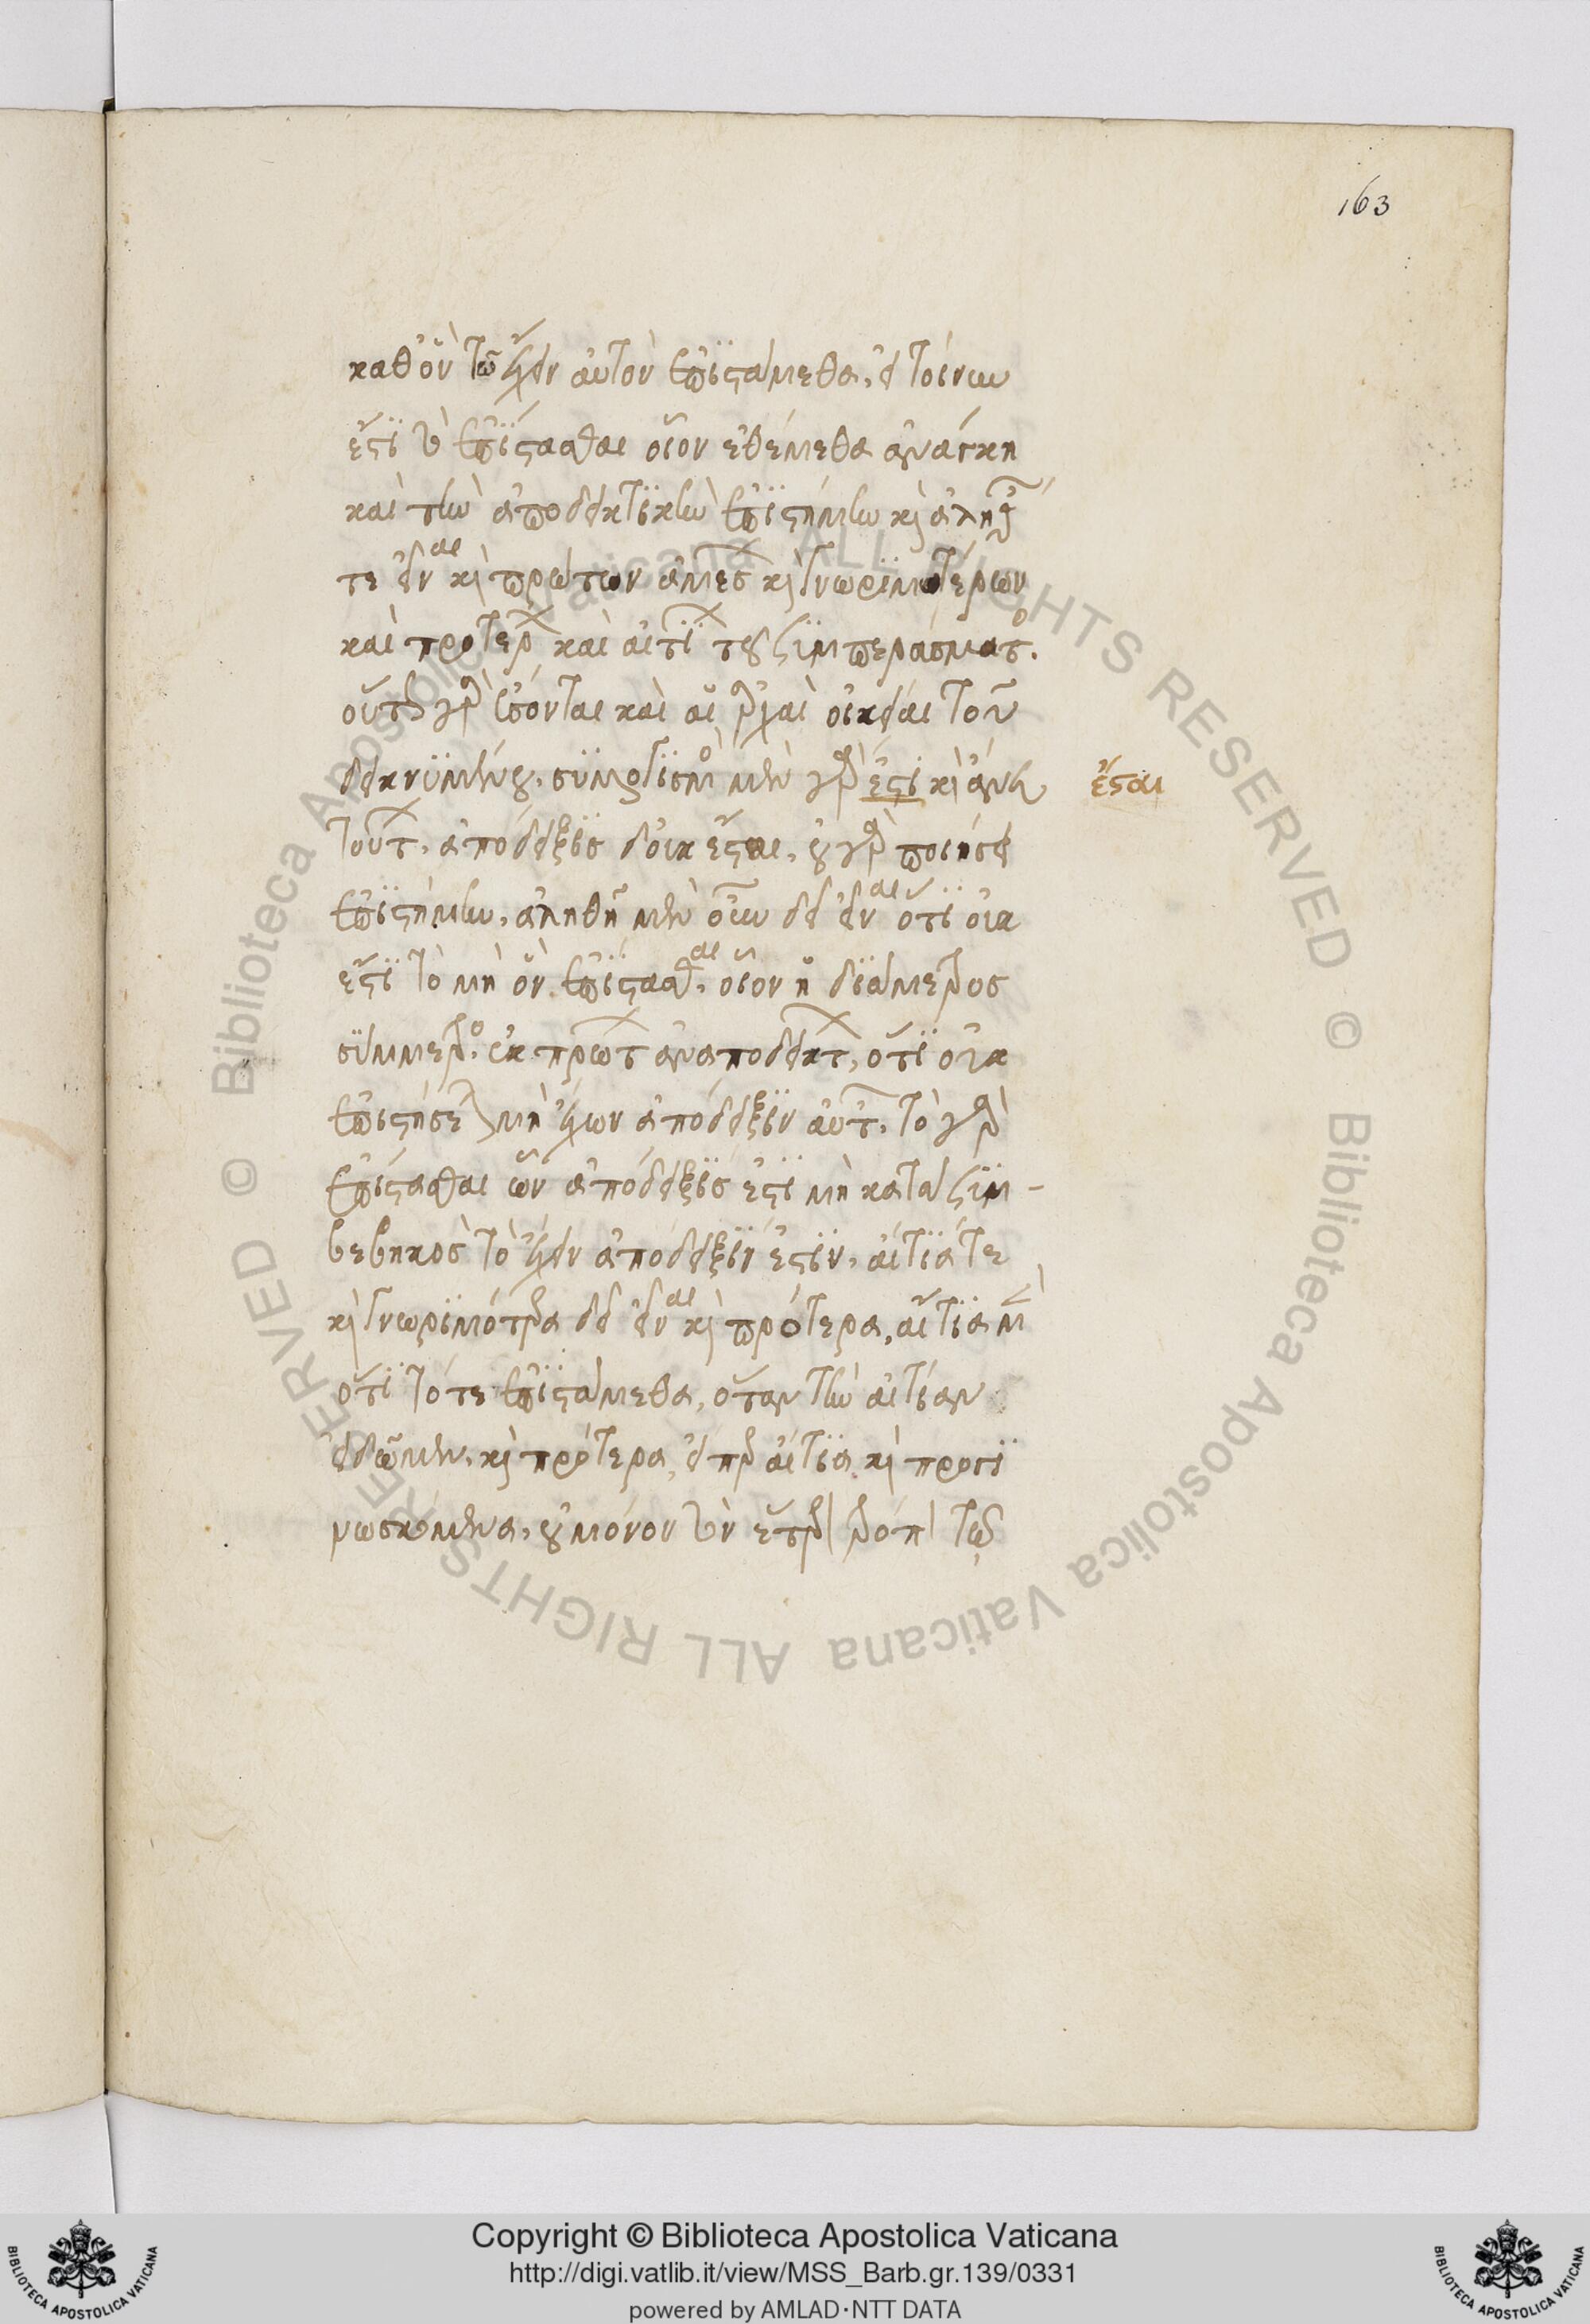 163
καθ' ὃν τῶ ἔχειν αὐτὸν ἐπιστάμεθα, εἰ τοίνυν
ἐστὶ τὸ ἐπίστασθαι οἷον ἐθέμεθα ἀνάγκη
καὶ τὴν ἀποδεικτικὴν ἐπιστήμην καὶ ἀληθῶν
τε εἶναι καὶ πρώτων ἀμέσων καὶ γνωριμωτέρων
καὶ προτέρων καὶ αἰτίων τοῦ συμπεράσματος.
οὕτως γὰρ ἔσονται καὶ αἱ ἀρχαὶ οἰκεῖαι τοῦ
δεικνυμένου. συλλογισμὸς μὲν γὰρ ἐστὶ καὶ ἄνευ ἔσται
τούτων, ἀπόδειξις δ' οὐκ ἔσται, οὐ γὰρ ποιήσει
ἐπιστήμην, ἀληθῆ μὲν οὖν δεῖ εἶναι ὅτι οὐκ
ἐστὶ τὸ μὴ ὂν ἐπίστασθαι, οἷον ἡ διάμετρος
σύμμετρος. ἐκ πρώτων ἀναποδείκτων, ὅτι οὐκ
ἐπιστήσεται μὴ ἔχων ἀπόδειξιν αὐτῶν, τὸ γὰρ
ἐπίστασθαι ὧν ἀπόδειξις ἐστὶ μὴ κατὰ συμ-
βεβηκὸς τὸ ἔχειν ἀπόδειξιν ἐστιν, αἴτιά τε
καὶ γνωριμότερα δεῖ εἶναι καὶ πρότερα, αἴτια μὲν
ὅτι τότε ἐπιστάμεθα, ὅταν τὴν αἰτίαν
εἰδῶμεν, καὶ πρότερα, εἴπερ αἴτια, καὶ προγι
νωσκόμενα, οὐ μόνον τὸν ἕτερον τρόπον τῶ
Copyright © Biblioteca Apostolica Vaticana
http://digi.vatlib.it/view/MSS_Barb.gr.139/0331
powered by AMLAD·NTT DATA
BIBLIOTECA APOSTOLICA VATICANA
BIBLIOTECA APOSTOLICA VATICANA
Biblioteca Apostolica Vaticana ALL RIGHTS RESERVED © Biblioteca Apostolica Vaticana ALL RIGHTS RESERVED ©